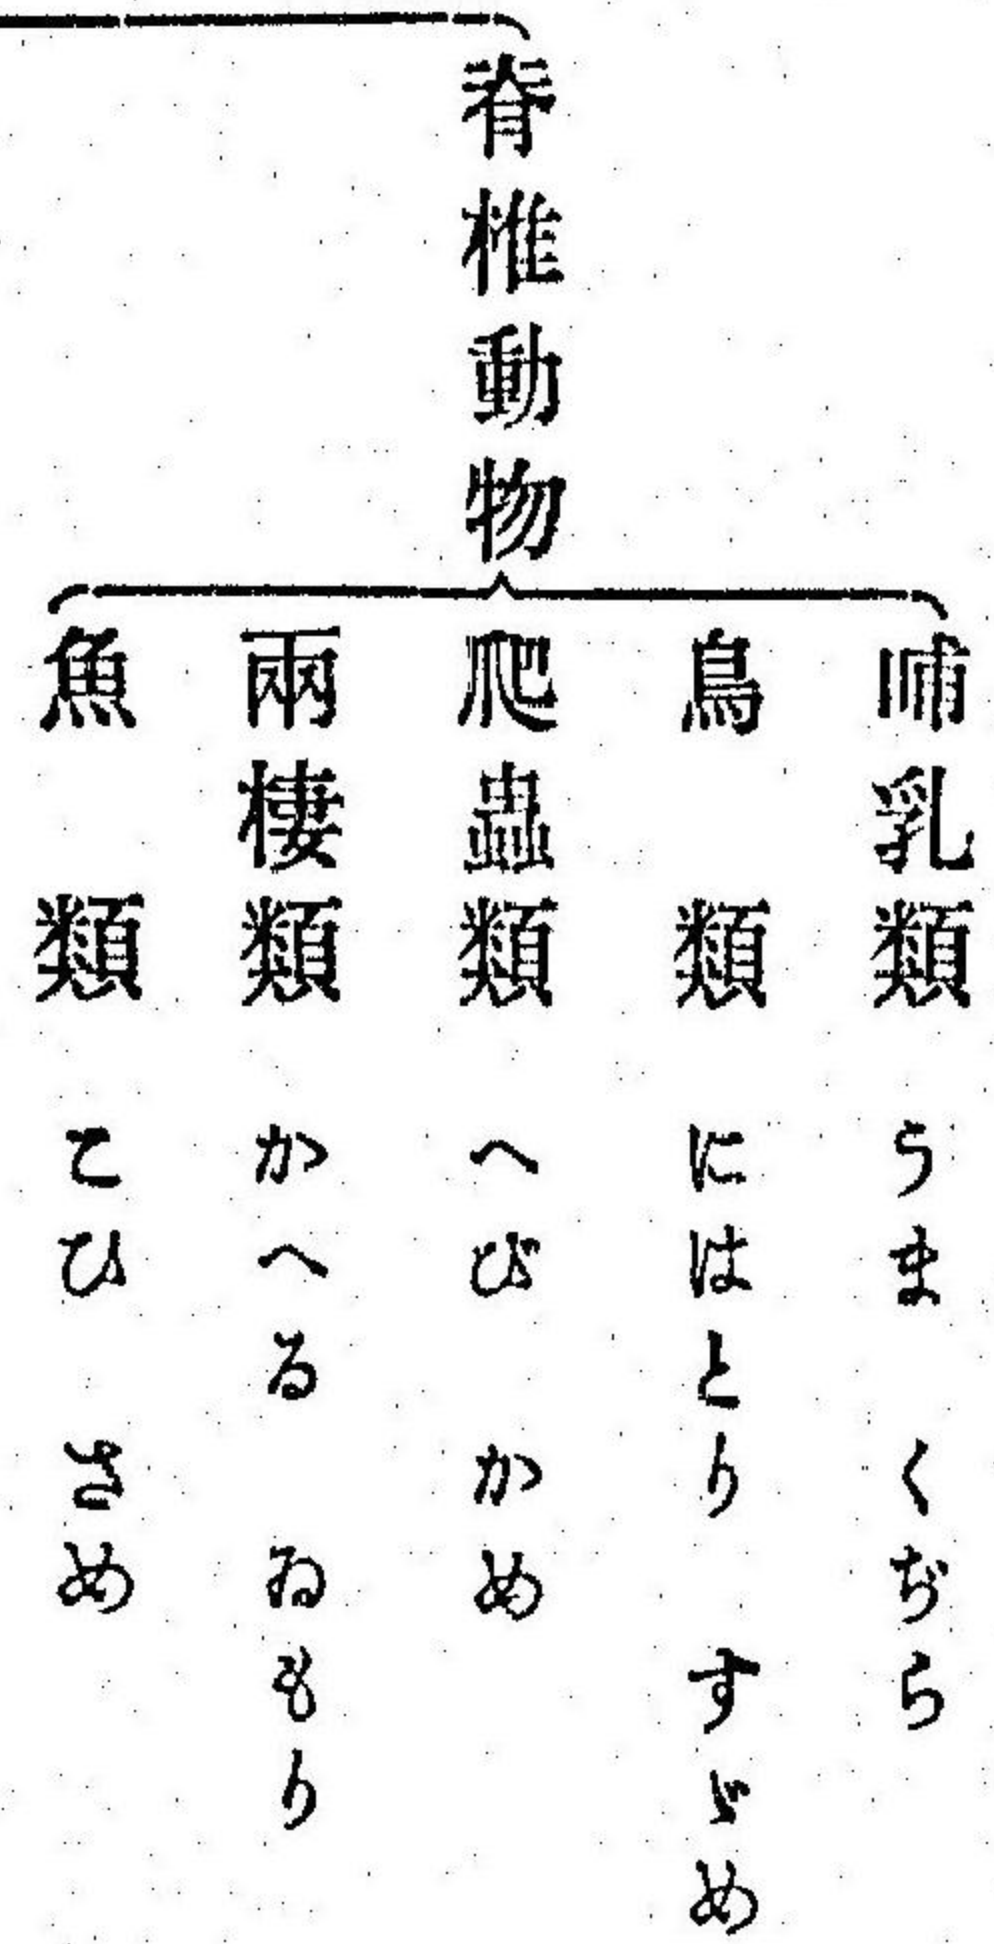 脊椎動物
哺乳類 うま くぢら
鳥類 にはとり すゞめ
爬蟲類 へび かめ
兩棲類 かへる ゐもり
魚類 こひ さめ